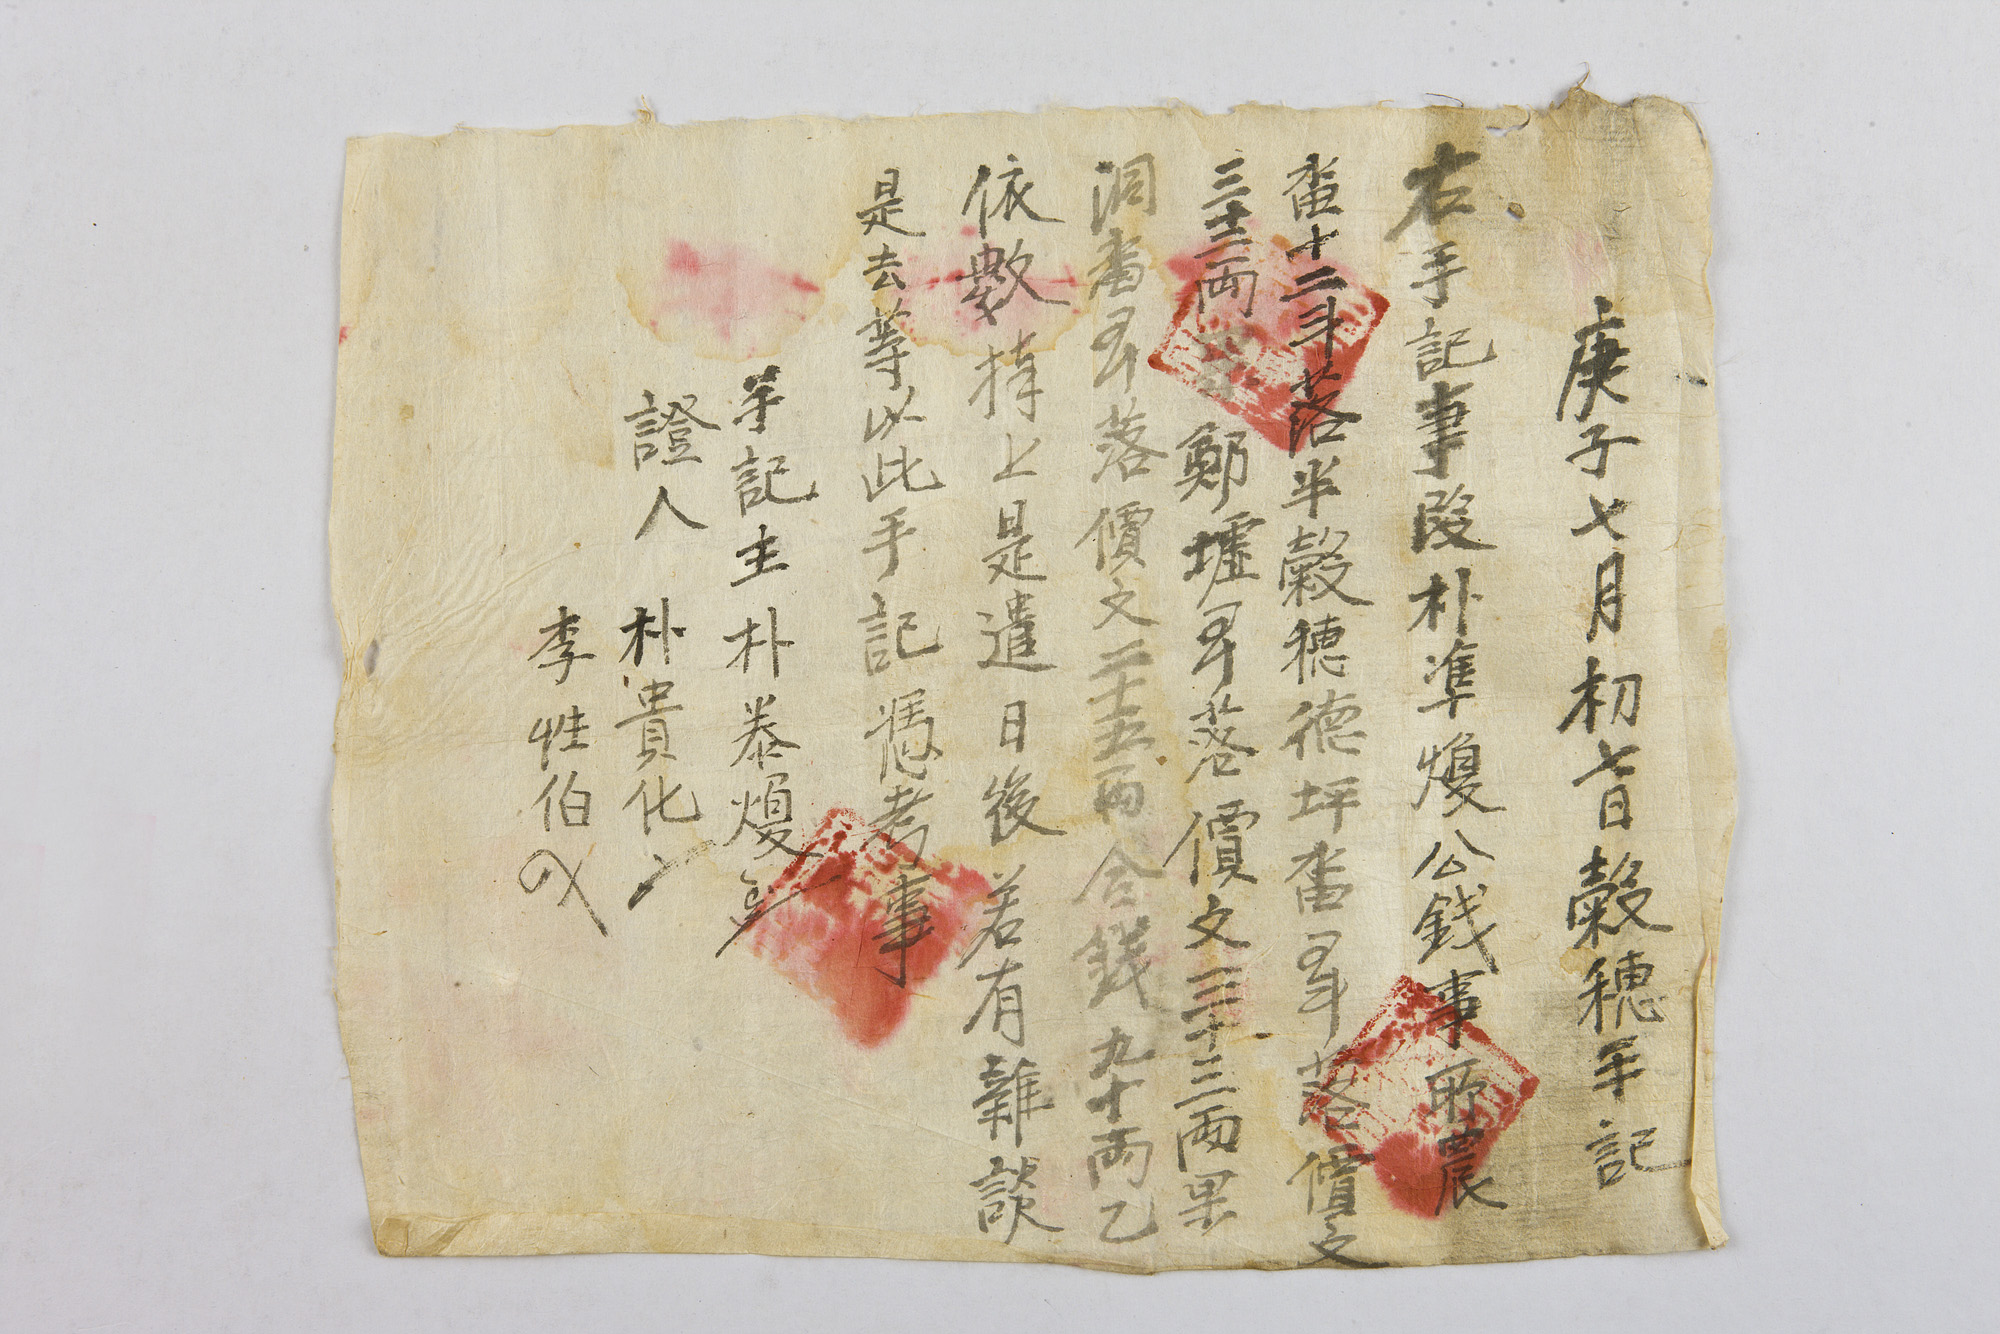 庚子七月初七日穀穗手記
右手記事段朴準煥公錢事所農
畓十二斗落半穀穗德坪畓四斗落價文
三十二兩 鄭墟四斗落價文三十三兩果
洞畓四斗落價文二十五兩合錢九十兩乙
依數捧上是遣日後若有雜談
是去等以此手記憑考事
手記主朴泰煥
證人朴貴化
李性伯